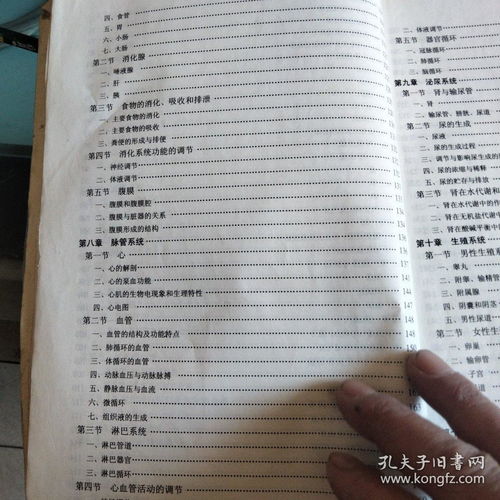 四、食管
五、胃
六、小肠
七、大肠
第二节 消化腺
一、唾液腺
二、肝
三、胰
第三节 食物的消化、吸收和排泄
一、主要食物的消化
二、主要食物的吸收
三、粪便的形成与排便
第四节 消化系统功能的调节
一、神经调节
二、体液调节
第五节 腹膜
一、腹膜和腹膜腔
二、腹膜与脏器的关系
三、腹膜形成的结构
第八章 脉管系统
第一节 心
一、心的解剖
二、心的泵血功能
三、心肌的生物电现象和生理特性
四、心电图
第二节 血管
一、血管的结构及功能特点
二、肺循环的血管
三、体循环的血管
四、动脉血压与动脉脉搏
五、静脉血压与血流
六、微循环
七、组织液的生成
第三节 淋巴系统
一、淋巴管道
二、淋巴器官
三、淋巴循环
第四节 心血管活动的调节
二、体液调节
第五节 器官循环
一、冠脉循环
二、肺循环
三、脑循环
第九章 泌尿系统
第一节 肾与输尿管
一、肾
二、输尿管、膀胱、尿道
第二节 尿的生成
一、尿液
二、尿的生成过程
三、调节与影响尿生成的
四、尿的浓缩与稀释
五、尿的贮存与排放
第三节 肾在水代谢和
一、肾在水代谢中的作
二、肾在无机盐代谢
三、肾在酸碱平衡中
第十章 生殖系统
第一节 男性生殖系
一、睾丸
二、附睾、输精管
三、附属腺
四、阴囊和阴茎
五、男性尿道
第二节 女性生
一、卵巢
二、输卵管
三、子宫
四、阴道
孔夫子旧书网
www.kongfz.com